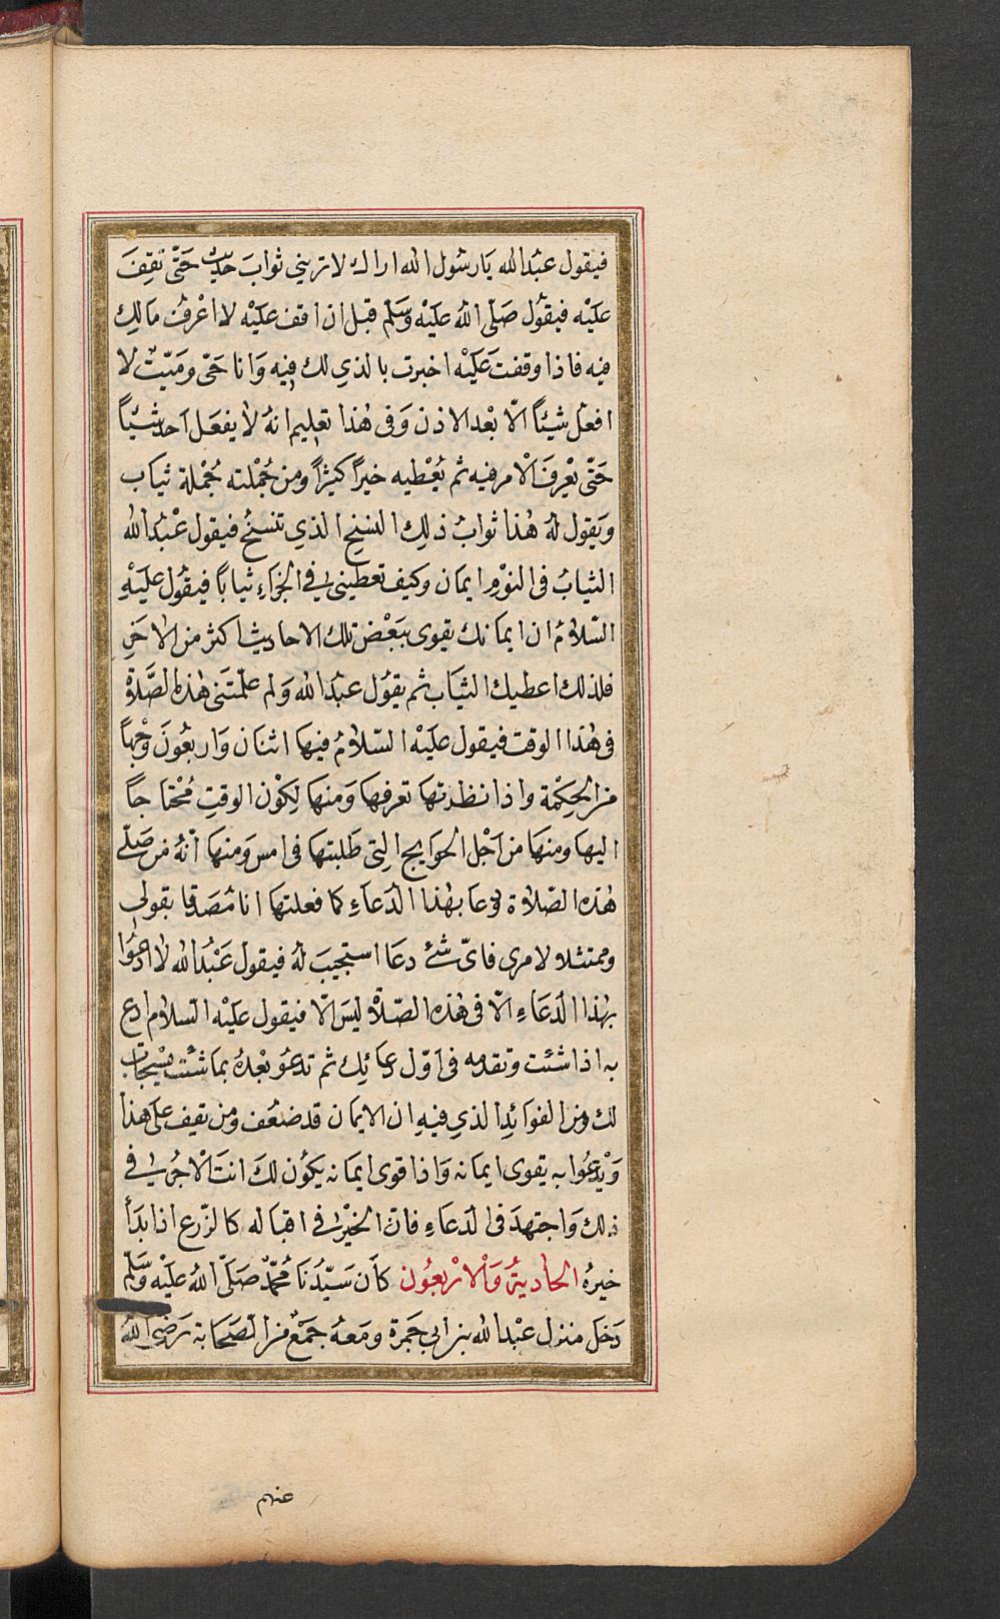 فيقول عبد الله يَا رسُول الله اراك لا تريني ثوابَ حديث حَتّى نقفَ
علَيْه فيقُول صَلّى اللهُ علَيْه وَسَلّم قبل ان اقف علَيْه لا اعْرفُ ما لكِ
فيه فاذا وقفت عَلَيْه اخبرت بالذي لك فِيه وَانا حَيّ ومَيّتٌ لا
افعَل شيئاً الّا بعْد الاذن وَفى هٰذا تعليم انهُ لا يفعَل احد شيئاً
حَتّى يَعْرفَ الْامر فيه ثم يُعْطيه خيراً كثيْراً ومن جُمْلته جُمْلة ثياب
وَيَقول لهُ هٰذا ثوابُ ذلك النسخ الذي تنسخُ فيقول عبْد الله
الثيابُ فى النوْم ايمان وكيف تعطينى فى الجزاءِ ثياباً فيقُول علَيْه
السّلامُ ان ايمانك يقوى ببَعْض تلك الاحاديث اكثر من الاخَرِ
فلذلك اعطيك الثيَاب ثم يقوُل عبْد الله وَلم علّمتَنى هٰذه الصَّلاةَ
فى هٰذا الوقت فيقول علَيْه السّلامُ فيها اثنان وَاربعُونَ وَجْهاً
من الحِكْمة واذا نظرتها تعرفها وَمنها لِكوْن الوقتِ مُحْتاجاً
اليها ومنهَا من اَجْل الحوَايج التِى طَلبتها فى امس وَمنها انّهُ من صَلّى
هٰذه الصّلاة ودعا بهٰذا الدّعَاءِ كما فعلتها انا مُصَدقا بقولى
وممتثلا لامرى فاىّ شئ دعَا استجيبَ لهُ فيقول عَبْد الله لا ادعُوا
بهٰذا الدّعَاءِ الّا فى هٰذه الصّلاة ليسَ الّا فيقول علَيْه السّلام ادع
به اذا شئت وتقدمه فى اوّل دعَائِك ثم تدعُو بعْدهُ بما شئت فيُستجاب
لك ومن الفوَائِد الذي فيهِ ان الايمان قد ضعُف ومن يقف على هٰذا
وَيدْعُوا به يقوى ايمانه وَاذا قوى ايمانه يكوُن لكَ انتَ الْاجرُ فى
ذلك وَاجتهدَ فى الدعَاءِ فانّ الخيْر فى اقباله كالزّرع اذا بَدَأ
خيرهُ الحَاديةُ وَالْارْبعُون كاَن سَيّدُنَا مُحَمّدٌ صَلّى اللهُ علَيْه وَسَلّم
دَخَل منزل عبْد الله بن ابى جَمرة ومَعهُ جَمعٌ من الصَحَابة رَضِىَ اللهُ
عنهم